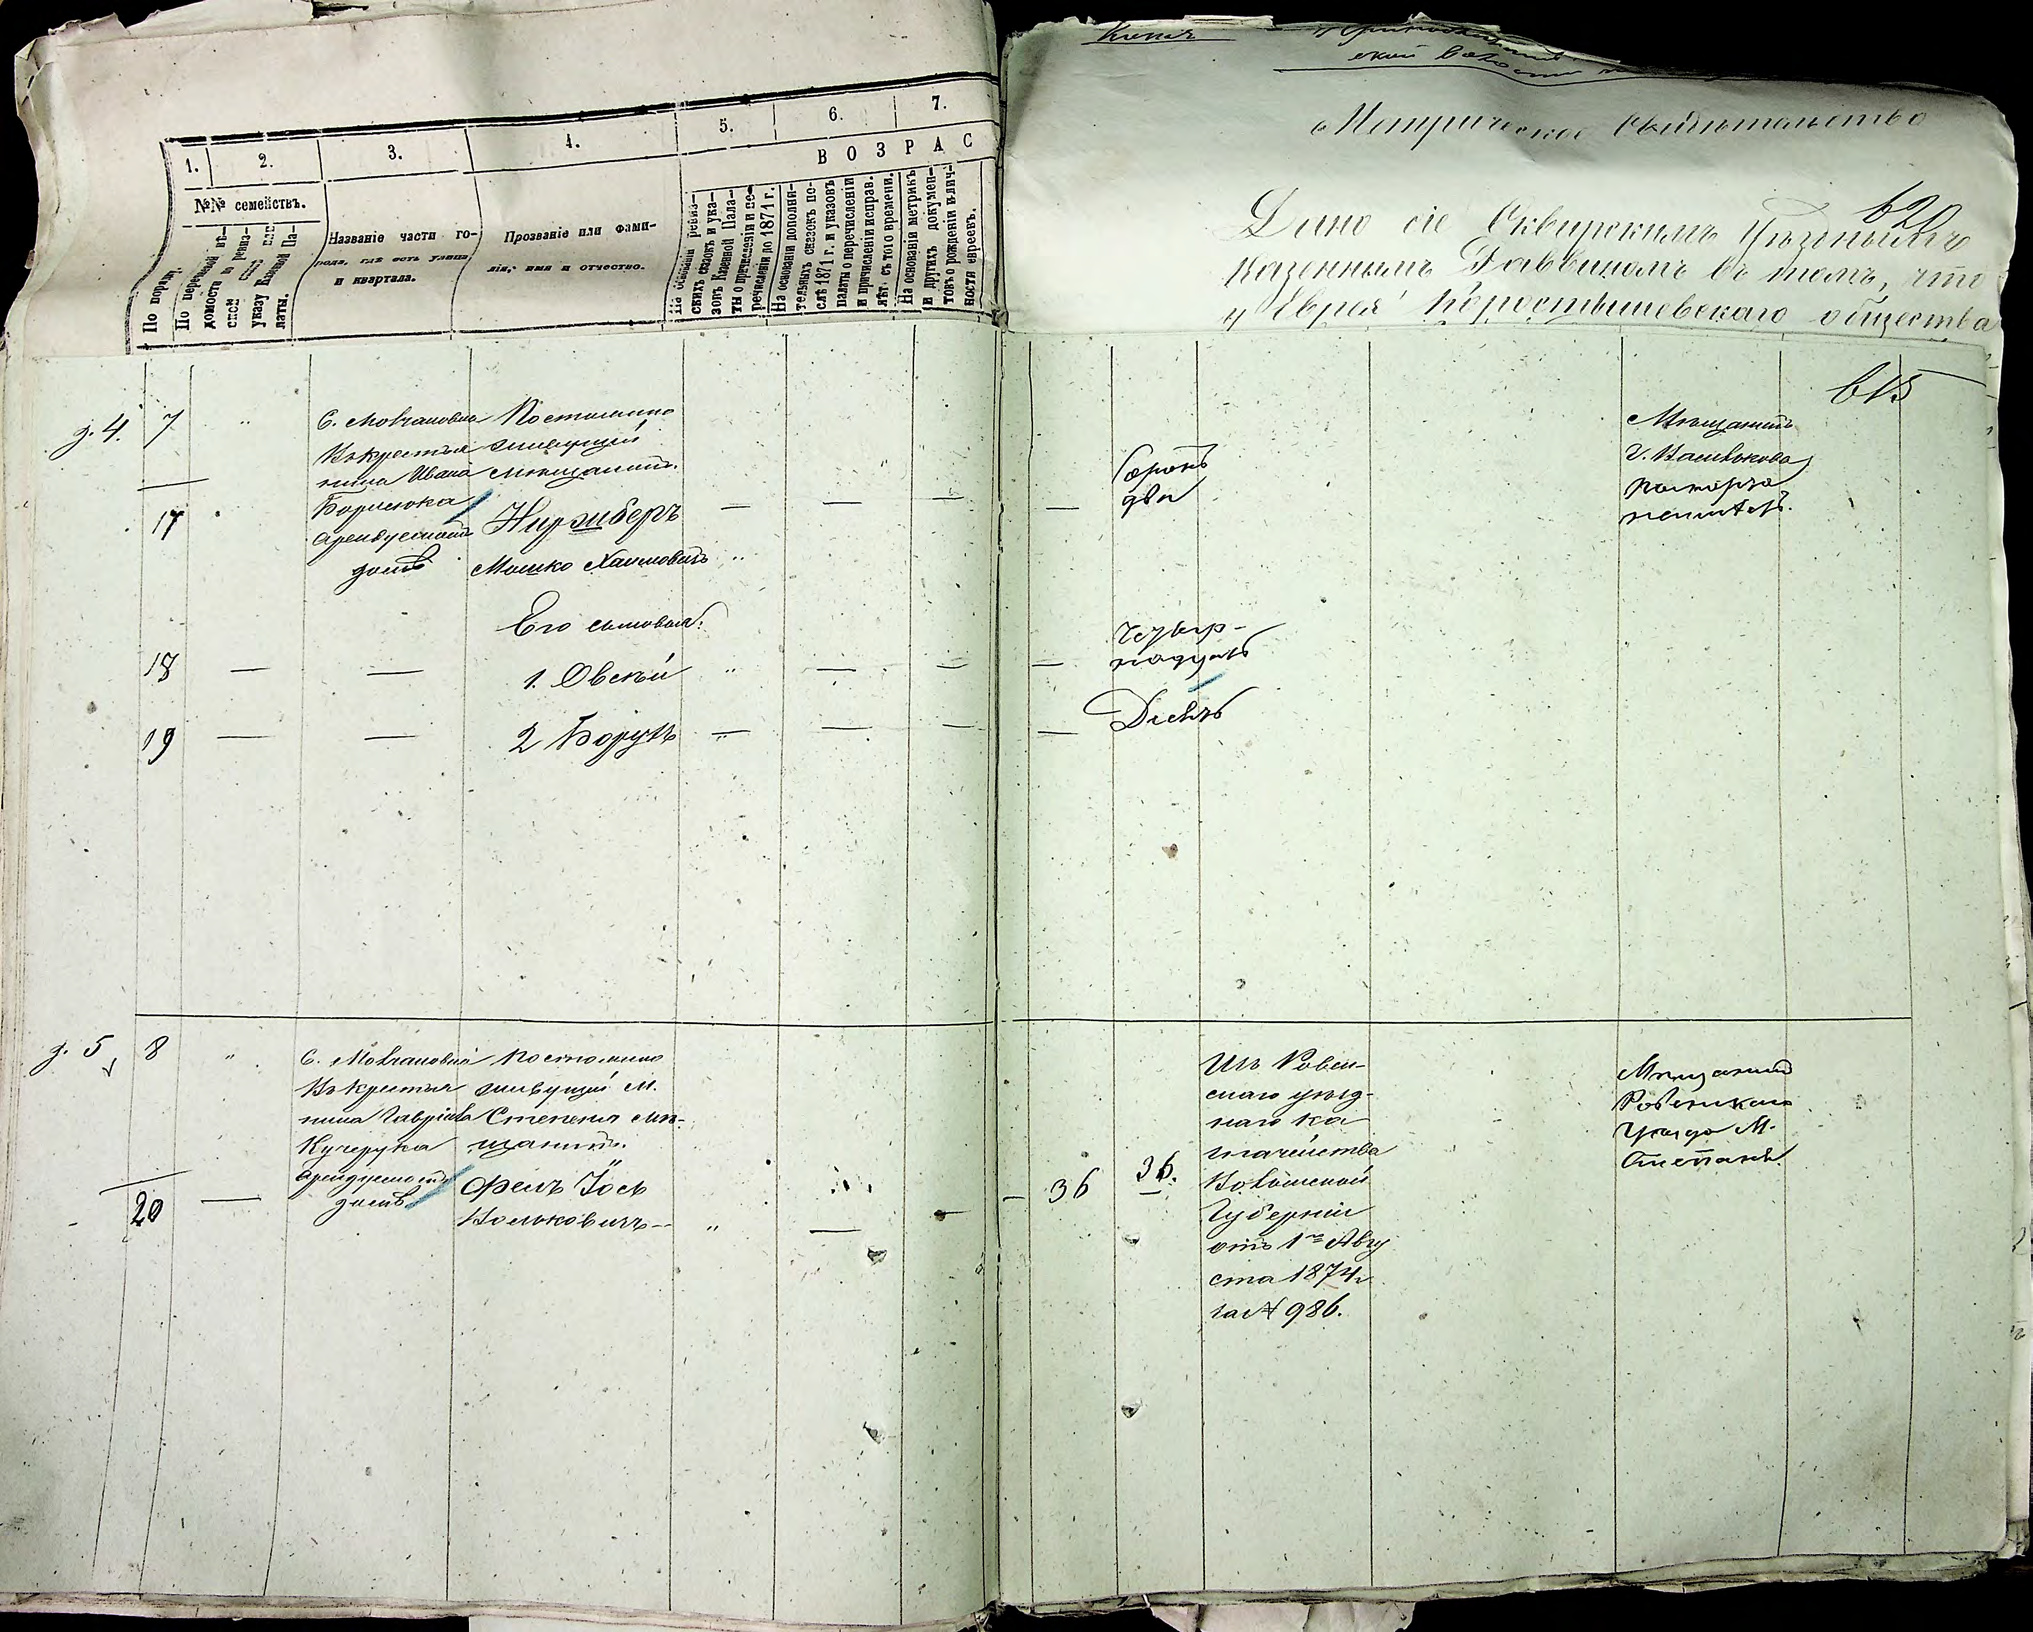 1. 2. 3. 4. 5. 6. 7.
ВОЗРАС
№№ семействъ.
По порядк
По перечневой вѣ-
домости и ревиз-
указу Казенной Па-
латы.
Названіе части го-
рода, гдѣ есть улица
и квартала.
Прозваніе или фами-
лія, имя и отчество.
На основаніи ревиз-
скихъ сказокъ и ука-
зовъ Казенной Пала-
ты о причисленіи и пе-
речисленіи до 1871 г.
На основаніи дополни-
тельныхъ сказокъ по-
слѣ 1871 г. и указовъ
палаты о перечисленіи
и причисленіи исправ.
лѣт. съ того времени.
На основаніи метрикъ
и другихъ докумен-
товъ о рожденіи и лич-
ности евреевъ.
Копія
Метрическое свидѣтельство
620
Дано сіе Сквирскимъ Уѣзднымъ
Казеннымъ Раввиномъ въ томъ, что
у Еврея Коростышевскаго общества
615
д. 4. 7
С. Молчановка
Въ крестья
нина Ивана
Борисюка
арендуемый
домъ
Постоянно
живущій
мѣщанинъ
17
Нирэнбергъ
Мошко Хаимовичъ
Сорокъ
два
Мѣщанинъ
г. Василькова
Его сыновья:
18
1. Овсѣй
Четыр-
надцать
19
2 Борухъ
д. 5 8
С. Молчановка
Въ крестья
нина Гавріила
Кучерука
арендуемый
домъ
Постоянно
живущій М.
Степеня мѣ-
щанинъ.
20
Фелъ Іось
Вольковичъ
36
36.
Изъ Ровен-
скаго уѣзд-
наго ка
значейства
Волынской
Губерніи
отъ 1го Авгу
ста 1874 г
за № 986.
Мѣщанинъ
Ровенскаго
Уѣзда М.
Степань.